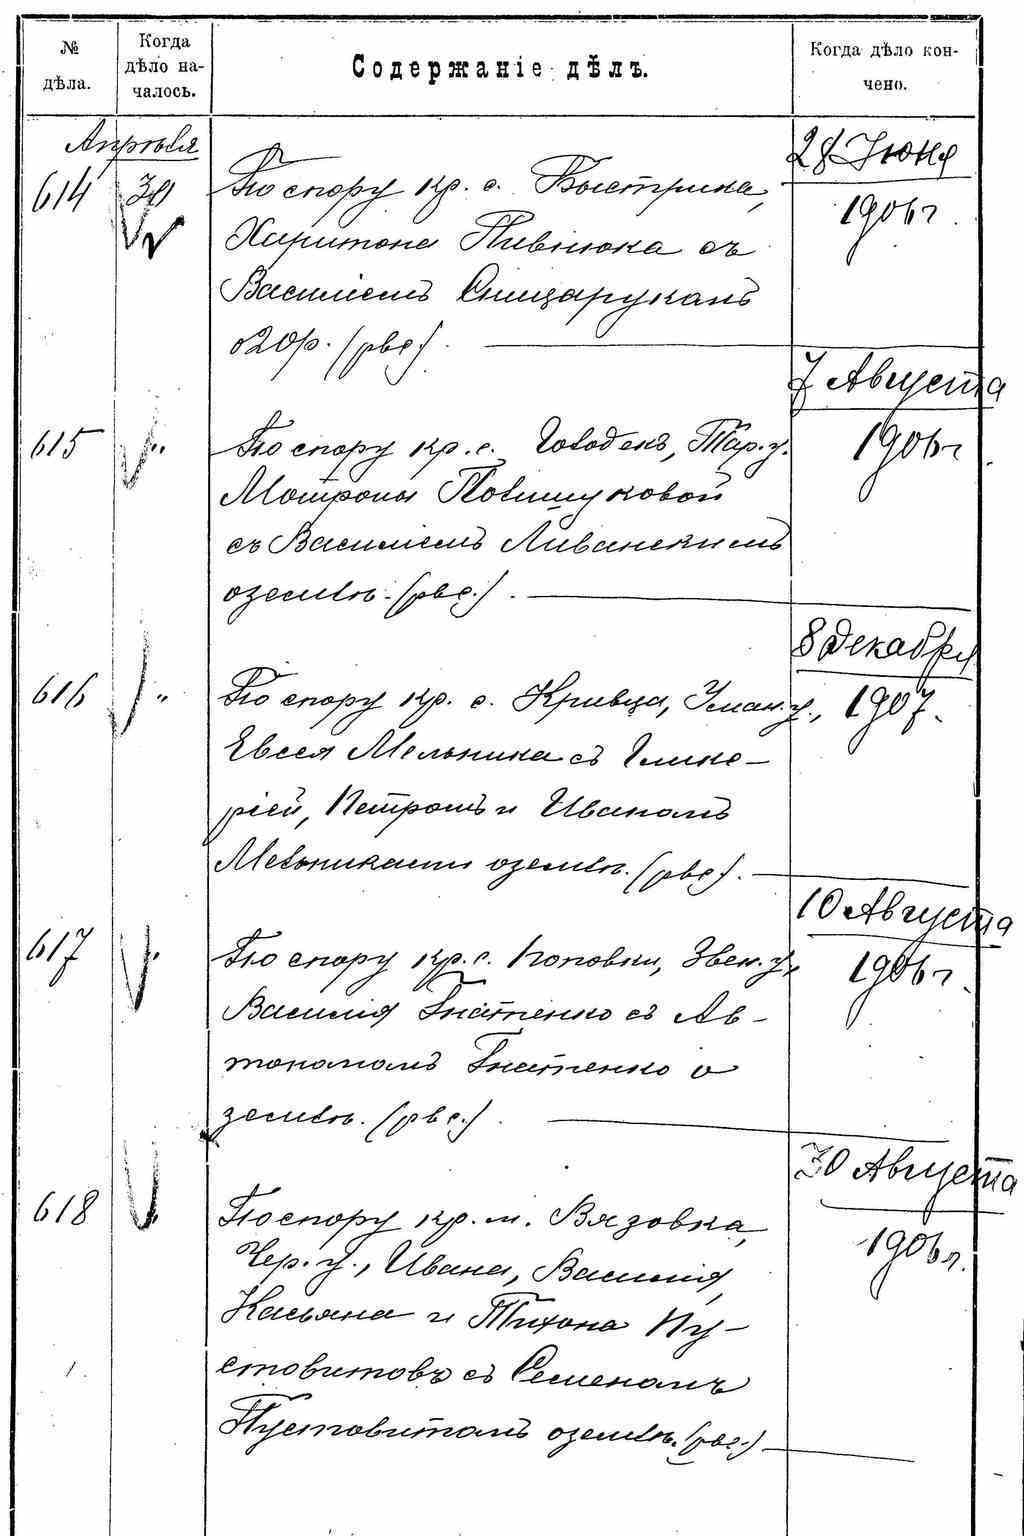 № дѣла.
Когда дѣло началось.
Содержаніе дѣлъ.
Когда дѣло кончено.
Апрѣля
614 30 По спору кр. с. Быстрика, 28 Іюня
Харитона Пивнюка съ 1906 г.
Василіемъ Снищарукомъ
о 20 р. (рвс.)
7 Августа
615 " По спору кр. с. Тар. у. 1906 г.
Мотроны Полищуковой
съ Василіемъ Ливанскимъ
о землѣ. (рвс.)
8 Декабря
616 " По спору кр. с. Кривца, Уман. у., 1907.
Евсея Мельника съ Глике-
ріей, Петромъ и Иваномъ
Мельниками о землѣ. (рвс.)
10 Августа
617 " По спору кр. с. Поповки, Звен. у, 1906 г.
Василія Гнатенко съ Ав-
тономомъ Гнатенко о
землѣ. (рвс.)
30 Августа
618 " По спору кр. м. Вязовка, 1906 г.
Чер. у., Ивана, Василія,
Касьяна и Тихона Пу-
стовитовъ съ Семеномъ
Пустовитомъ о землѣ. (рвс.)